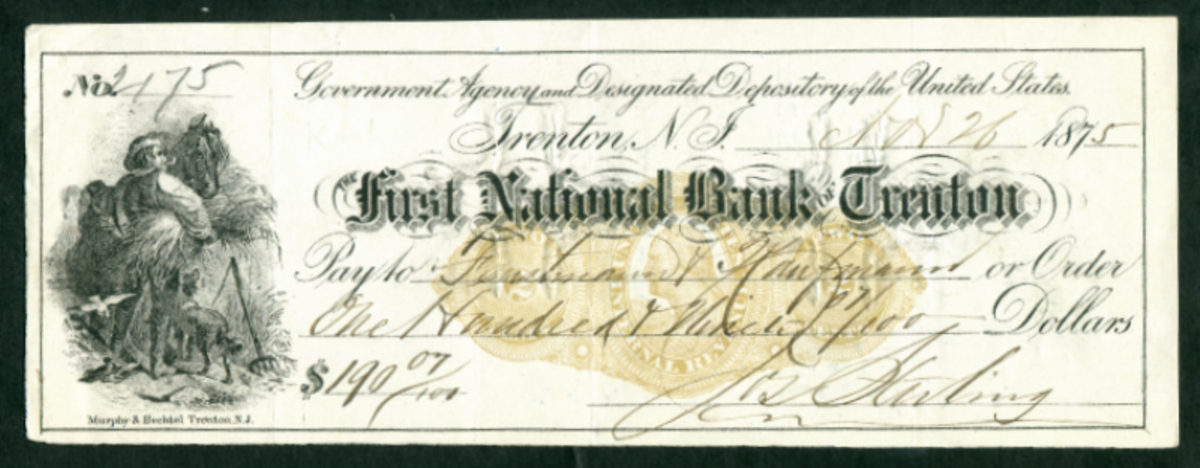 No. 2175
Government Agency and Designated Depository of the United States.
Trenton, N. J. Nov 26 1875
THE First National Bank OF Trenton
Pay to Funstmann & Kaufmann or Order
One Hundred & Ninety 07/100 Dollars
$190 07/100
Jos Sterling
INTERNAL REVENUE
Murphy & Bechtel Trenton, N.J.